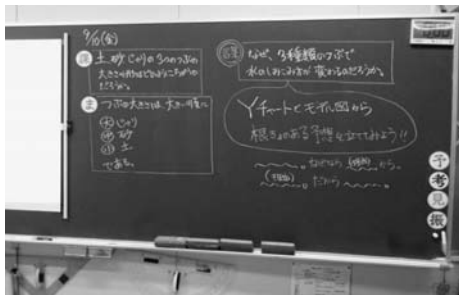 9/10(金)
課 土、砂、じゃりの3つのつぶの
大きさは
だろうか。
ま つぶの大きさは、大きい順に
大 じゃり
中 砂
小 土
である。
なぜ、3種類のつぶで
水のしみこみ方が変わるのだろうか。
Yチャートとモデル図から
根きょのある予想を立てみよう!!
。なぜなら(理由)から。
(理由)だから 。
予
考
見
振